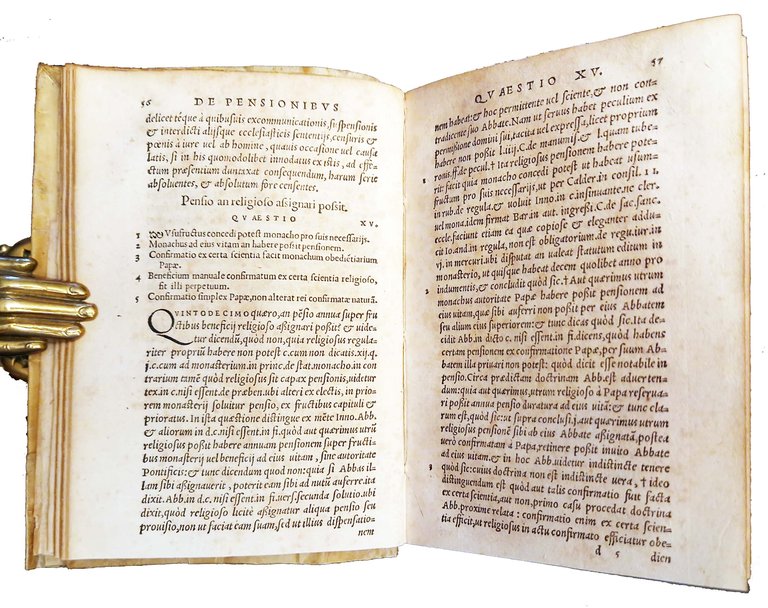 56 DE PENSIONIBVS
delicet téque à quibusuis excommunicationis, suspensionis
& interdicti alijsque ecclesiasticis sententijs, censuris &
pœnis à iure uel ab homine, quauis occasione uel causa
latis, si in his quomodolibet innodatus existis, ad effe-
ctum præsentium duntaxat consequendum, harum serie
absoluentes, & absolutum fore censentes.
Pensio an religioso assignari possit.
QVAESTIO XV.
1 Vsufructus concedi potest monacho pro suis necessarijs.
2 Monachus ad eius vitam an habere possit pensionem.
3 Confirmatio ex certa scientia facit monachum obedictiarium
Papæ.
4 Beneficium manuale confirmatum ex certa scientia religioso,
fit illi perpetuum.
5 Confirmatio simplex Papæ, non alterat rei confirmatæ naturã.
QVINTODECIMO quæro, an pẽsio annua super fru
ctibus beneficij religioso assignari possit? & uide-
tur dicendũ, quòd non, quia religiosus regula-
riter propriũ habere non potest c.cum non dicatis.xij.q.
j.c.cum ad monasterium.in princ.de stat.monacho.in con-
trarium tamẽ quòd religiosus sit capax pensionis, uidetur
tex.in c.nisi essent.de præben.ubi alteri ex electis, in prio-
rem monasterij soluitur pensio, ex fructibus capituli &
prioratus. In ista quæstione distingue ex mẽte Inno. Abb.
& aliorum in d.c.nisi essent.in fi.quòd aut quærimus utrũ
religiosus possit habere annuam pensionem super fructi-
bus monasterij uel beneficij ad eius vitam, sine autoritate
Pontificis: & tunc dicendum quòd non: quia si Abbas il-
lam sibi assignauerit, poterit eam sibi ad nutũ auferre, ita
dixit. Abb.in d.c.nisi essent.in fi.uers.secunda solutio.ubi
dixit, quòd religioso licitè assignatur aliqua pensio seu
prouisio, non ut faciat eam suam, sed ut illius dispensatio-
nem
QVAESTIO XV. 57
nem habeat: & hoc permittente uel sciente, & non con-
tradicente suo Abbate. Nam ut seruus habet peculium ex
permissione domini sui, tacita uel expressa, licet proprium
habere non possit l.iiij.C.de manumis. & l.quam tube-
ronis.ff.de pecul. † Ita religiosus pensionem habere pote-
1 rit: facit quia monacho concedi potest ut habeat usum-
fructum pro suis necessarijs, ut per Calder.in consil.11.
in rub.de regula. & uoluit Inno.in c.insinuante.ne cler.
uel mona.idem firmat Bar.in aut. ingressi. C. de sac.sanc.
eccle.faciunt etiam ea quæ copiosè & eleganter addu-
cit Io.and.in regula, non est obligatorium.de reg.iur.in
vj. in mercuri.ubi disputat an ualeat statutum editum in
monasterio, ut quisque habeat decem quolibet anno pro
2 indumentis, & concludit quòd sic. † Aut quærimus utrum
monachus autoritate Papæ habere possit pensionem ad
eius uitam, quæ sibi auferri non possit per eius Abbatem
seu alium eius superiorem: & tunc dicas quòd sic. Ita di-
xit Abb.in dicto c. nisi essent in fi. dicens, quòd habens
certam pensionem ex confirmatione Papæ, per suum Ab-
batem illa priuari non potest: quòd dicit esse notabile in
pensio. Circa prædictam doctrinam Abb. est aduerten-
dum: quia aut quærimus, utrum religioso à Papa reserua-
ri possit annua pensio duratura ad eius uitã: & tunc cla-
rum est, quòd sic: suprà conclusum fuit: aut quærimus utrum
religiosus pensionẽ sibi ab eius Abbate assignatã, postea
uerò confirmatam à Papa, retinere possit inuito Abbate
ad eius uitam: & in hoc Abb. uidetur indistincte tenere
3 quòd sic: cuius doctrina non est indistincte uera, † ideo
distinguendum est quòd aut talis confirmatio fuit facta
ex certa scientia, aut non, primo casu procedat doctrina
Abb. proxime relata: confirmatio enim ex certa scien-
tia efficit, ut religiosus in actu confirmato efficiatur obe-
d 5 dien